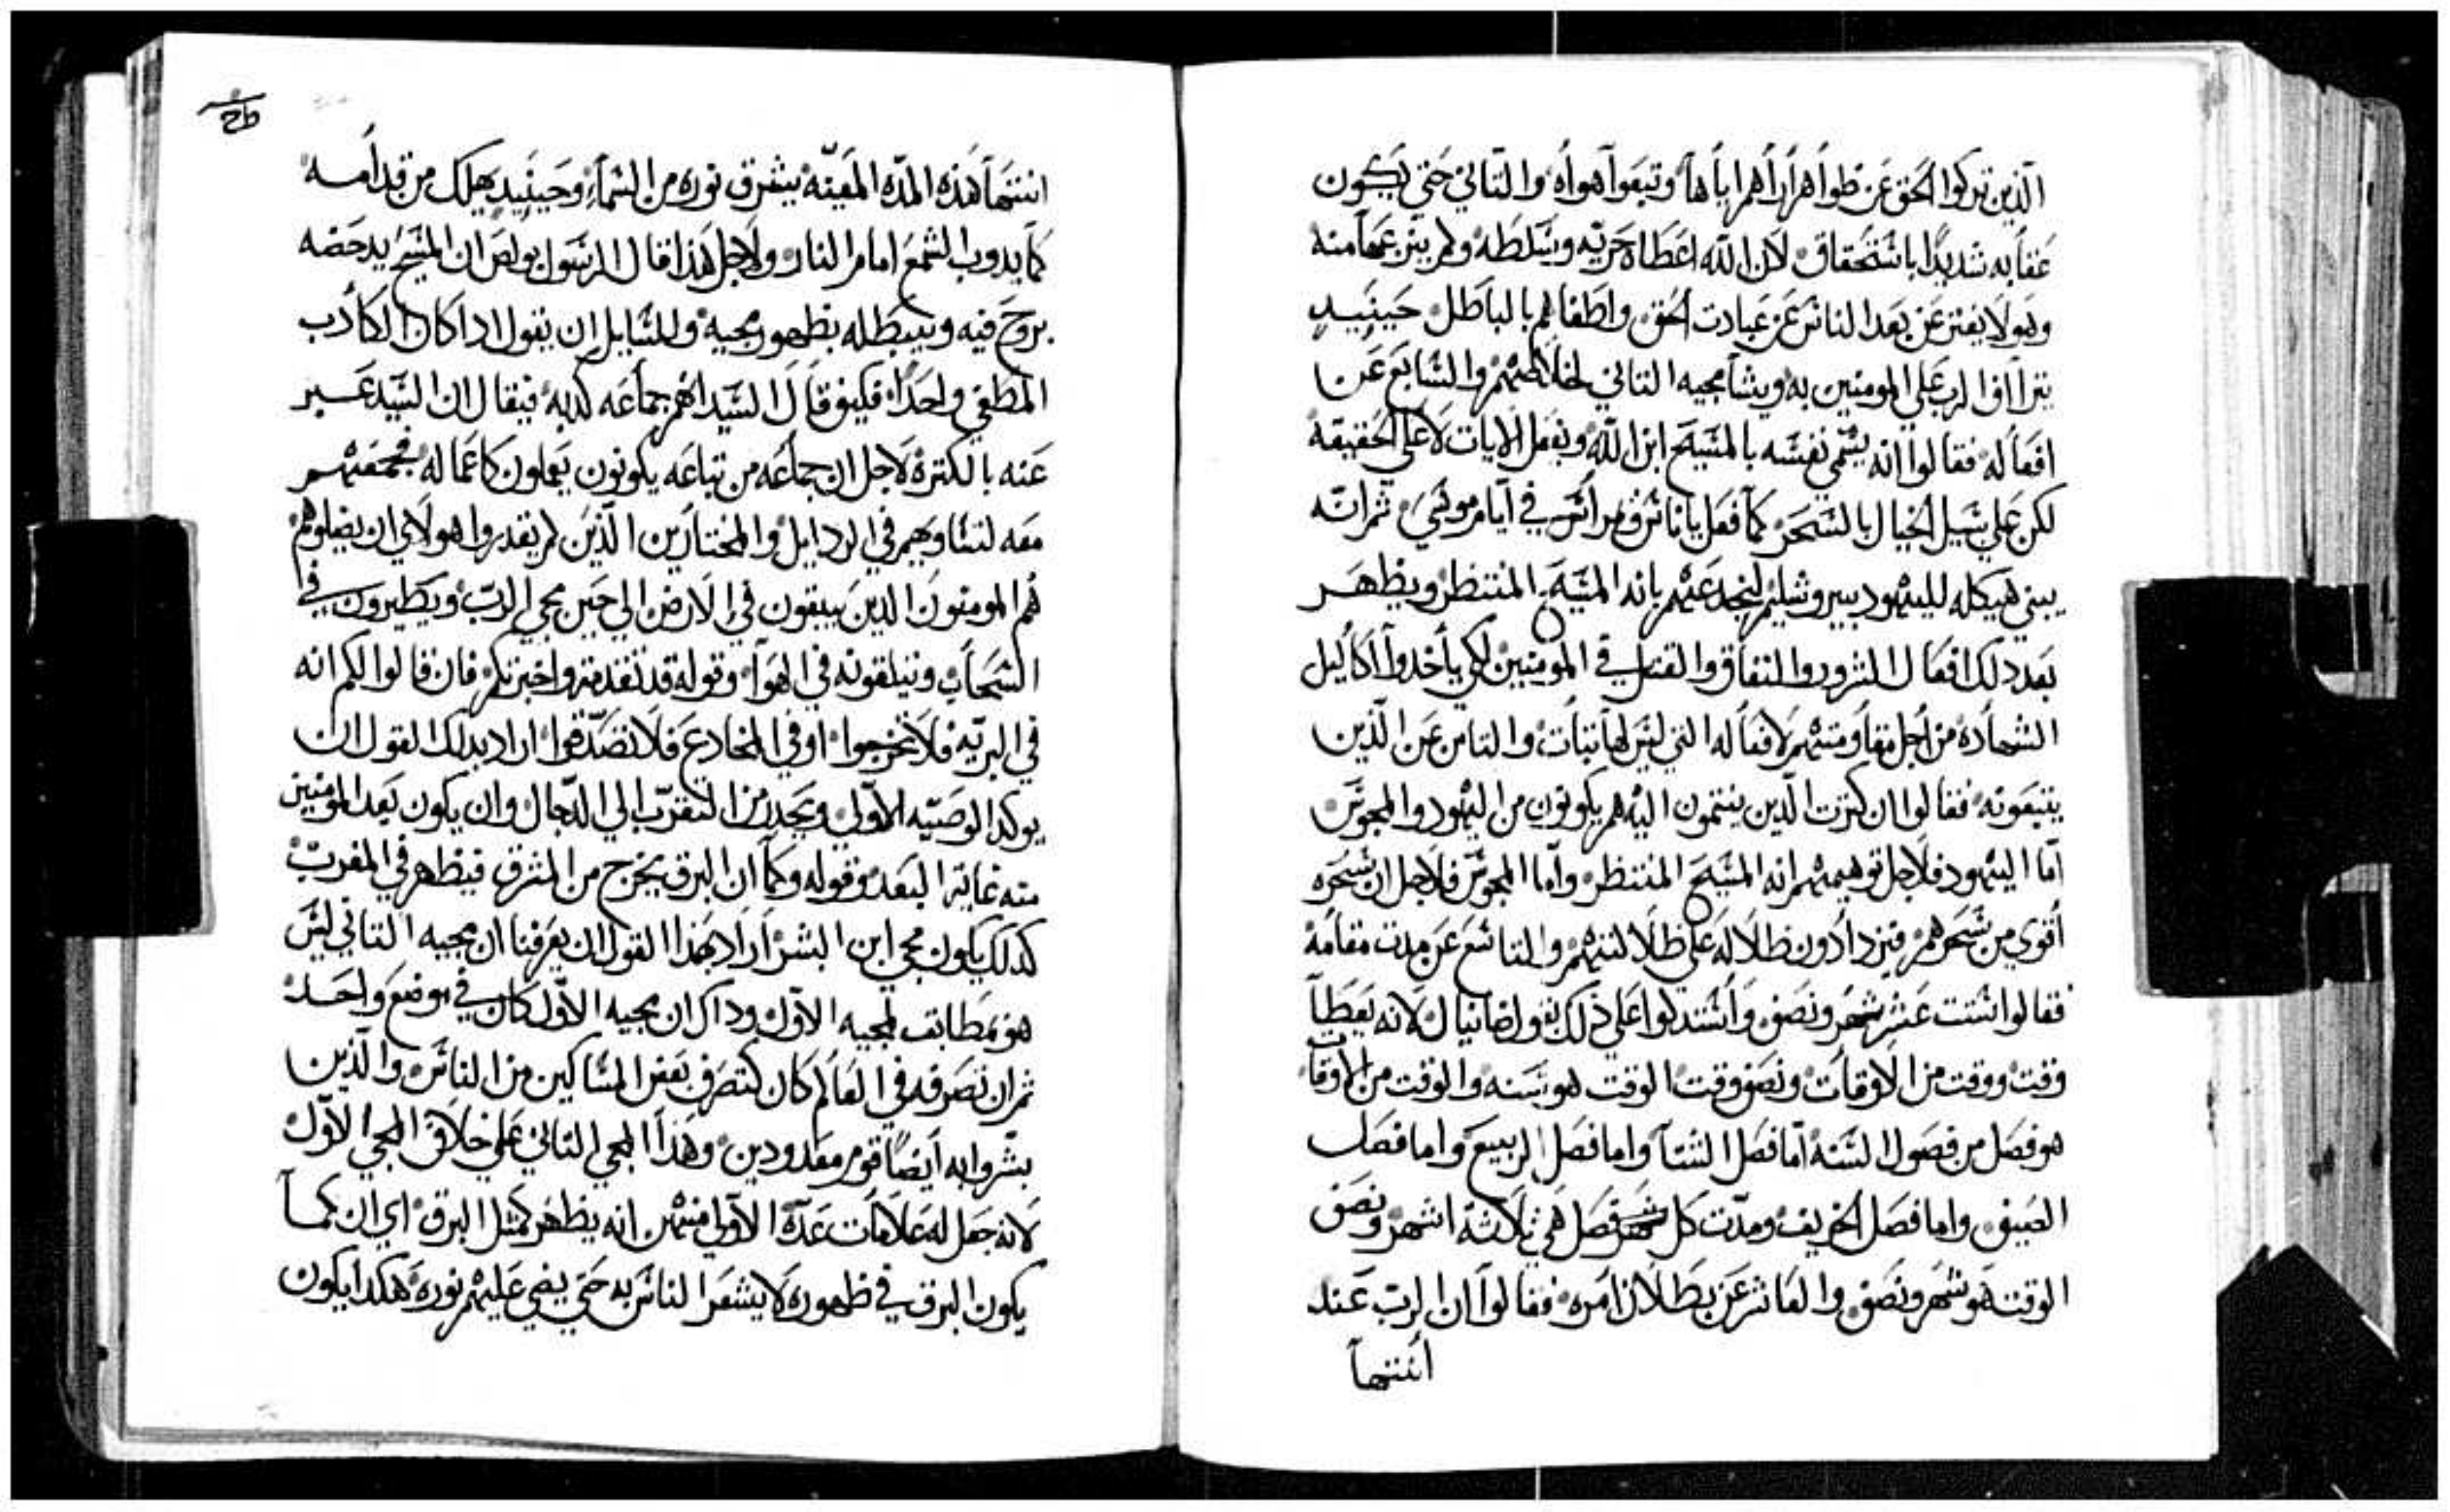 الذين تركوا الحق عن طواهرارأهم اياها وتبعوا هواه والتاني حتي يكون
عقابه شديدًا باستحقاق لان الله اعطاه حريته وسلطه ولم ينزعها منه
وهو لا يفتر عن بعد الناس عن عبادت الحق واطغالهم بالباطل حينيد
يتراأف الرب علي المومنين به ويشا مجيه التاني لخلاصهم والسابع عن
افعاله فقالوا انه يسمي نفسه بالمسيح ابن الله ويفعل الايات لا علي الحقيقة
لكن علي سبيل الخيال بالسحر كما فعل ياناس ويمراس في ايام موسي ثم انه
يبني هيكله لليهود بيروشليم ليخدعهم بانه المسيح المنتظر ويظهر
بعد دلك افعال الشرور والنفاق والقتل في المومنين لكي ياخدوا اكاليل
الشهاده من اجل مقاومتهم لافعاله التي ليس لها تبات والتامن عن الذين
يتبعونه فقالوا ان كترت الذين ينتمون اليه هم يكونون من اليهود والمجوس
اما اليهود فلاجل توهيمهم انه المسيح المنتظر واما المجوس فلاجل ان سحره
أقوي من سحرهم فيزدادون ظلاله علي ظلالتهم والتاسع عن مدت مقامه
فقالوا ستت عشر شهر ونصف وأستدلوا علي ذلك بقول دانيال لانه يعطيا
وقت ووقت من الاوقات ونصف وقت الوقت هو سنه والوقت من الاوقات
هو فصل من فصول السنة اما فصل الشتا واما فصل الربيع واما فصل
الصيف واما فصل الخريف ومدت كل فصل هي ثلاثة اشهر ونصف
الوقت هو شهر ونصف والعاشر عن بطلان امره فقالوا ان الرب عند
أنتها
انتها هذه المده المعينه يشرق نوره من السماء وحينيد يهلك من قدامه
كما يدوب الشمع امام النار ولاجل هذا قال الرسول بولص ان المسيح يدحضه
بروح فيه ويبطله بظهور مجيه وللسايل ان يقول ادا كان الكادب
المطغي واحدًا فكيف قال السيد انهم جماعه كدبه فيقال ان السيد عبر
عنه بالكترة لاجل ان جماعه من تباعه يكونون يعملون كاعماله فجمعهم
معه لتساويهم في الردايل والمختارين الذين لم يقدروا هولاي ان يضلوهم
هم المومنون الدين يبقون في الارض الي حين مجي الرب ويطيرون في
السحاب ويتلقونه في الهوا وقوله قد تقدمت واخبرتكم فان قالوا لكم انه
في البريه فلا تخرجوا او في المخادع فلا تصدقوا اراد بدلك القول ان
يوكد الوصيه الاولي ويحدر من التقرب الي الدجال وان يكون بعد المومنين
منه غاية البعد وقوله وكما ان البرق يخرج من المشرق فيظهر في المغرب
كدلك يكون مجي ابن البشر أراد بهذا القول ان يعرفنا ان مجيه التاني ليس
هو بمطابق لمجيه الاول وداك ان مجيه الاول كان في موضع واحد
ثم ان تصرفه في العالم كان كتصرف بعض المساكين من الناس والذين
بشروا به أيضًا قوم معدودين وهذا المجي التاني علي خلاف المجي الاول
لانه جعل له علامات عدة الاولي منهن انه يظهر كمتل البرق اي ان كما
يكون البرق في ظهوره لا يشعر الناس به حتي يضي عليهم نوره هكدا يكون